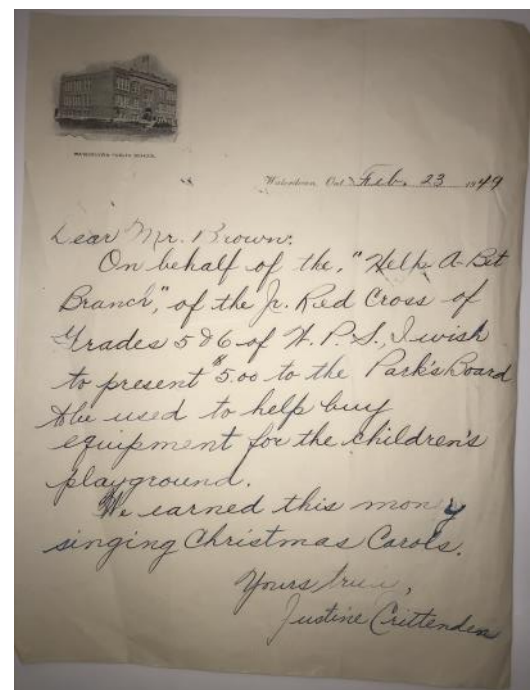 WATERDOWN PUBLIC SCHOOL
Waterdown, Ont. Feb. 23 1949
Dear Mr. Brown:
On behalf of the, "Help A-Bit
Branch", of the Jr. Red Cross of
Grades 5 & 6 of W. P. S., I wish
to present $5.00 to the Park's Board
to be used to help buy
equipment for the children's
playground.
We earned this money
singing Christmas Carols.
Yours truly,
Justine Crittenden